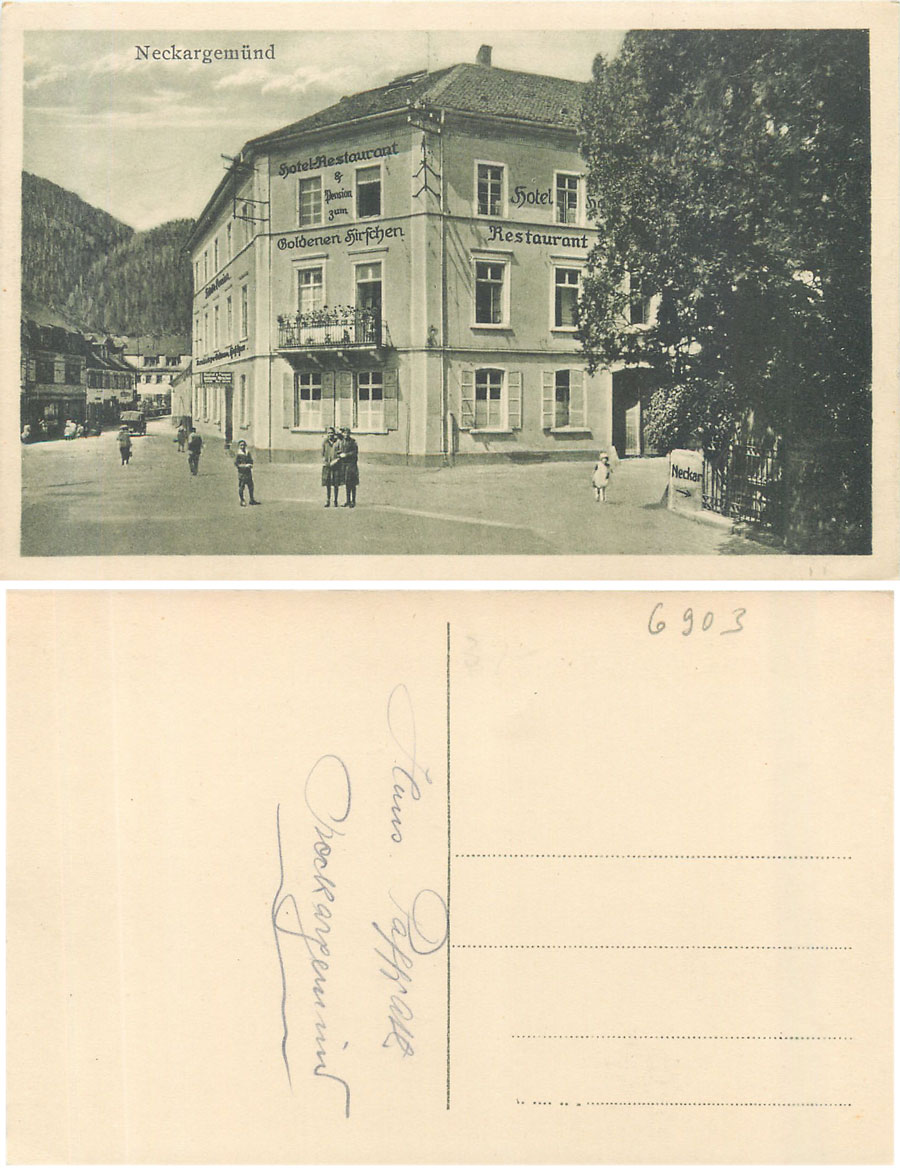 Neckargemünd
Hotel-Restaurant
&
Pension
zum
Goldenen Hirschen
Hotel Ho
Restaurant
Neckar
6903
Hans
Neckargemünd